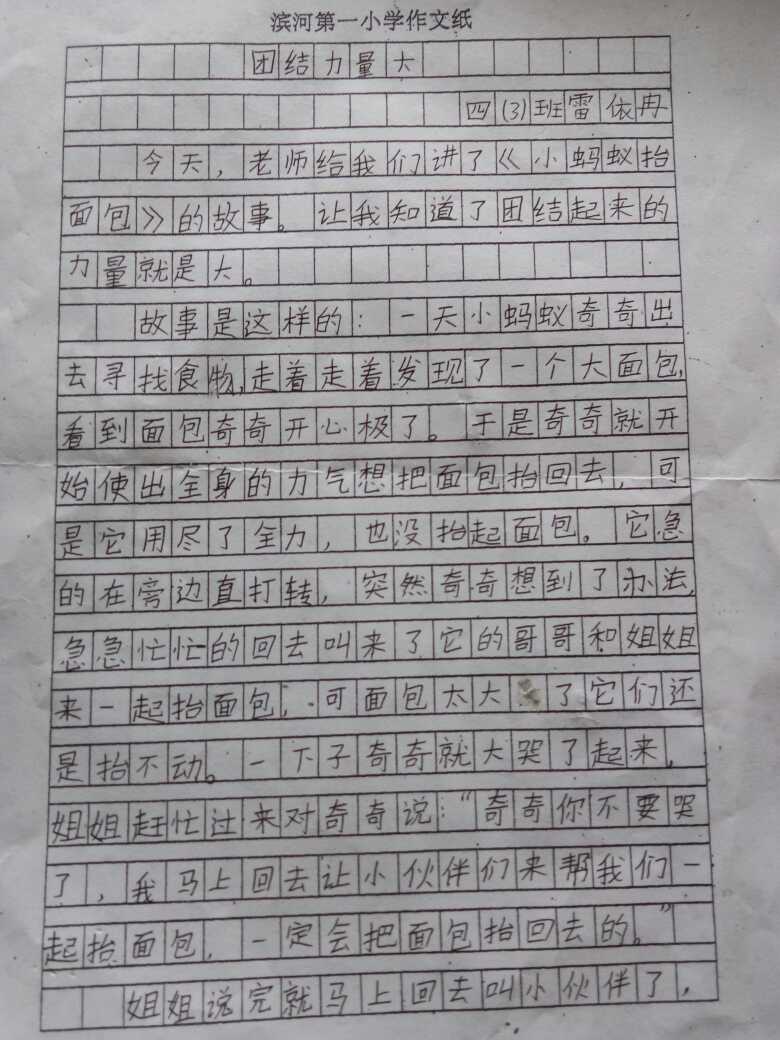 滨河第一小学作文纸
团结力量大
四(3)班雷依冉
今天，老师给我们讲了《小蚂蚁抬
面包》的故事。让我知道了团结起来的
力量就是大。
故事是这样的：一天小蚂蚁奇奇出
去寻找食物，走着走着发现了一个大面包，
看到面包奇奇开心极了。于是奇奇就开
始使出全身的力气想把面包抬回去，可
是它用尽了全力，也没抬起面包。它急
的在旁边直打转，突然奇奇想到了办法，
急急忙忙的回去叫来了它的哥哥和姐姐
来一起抬面包，可面包太大了它们还
是抬不动。一下子奇奇就大哭了起来，
姐姐赶忙过来对奇奇说：“奇奇你不要哭
了，我马上回去让小伙伴们来帮我们一
起抬面包，一定会把面包抬回去的。”
姐姐说完就马上回去叫小伙伴了，